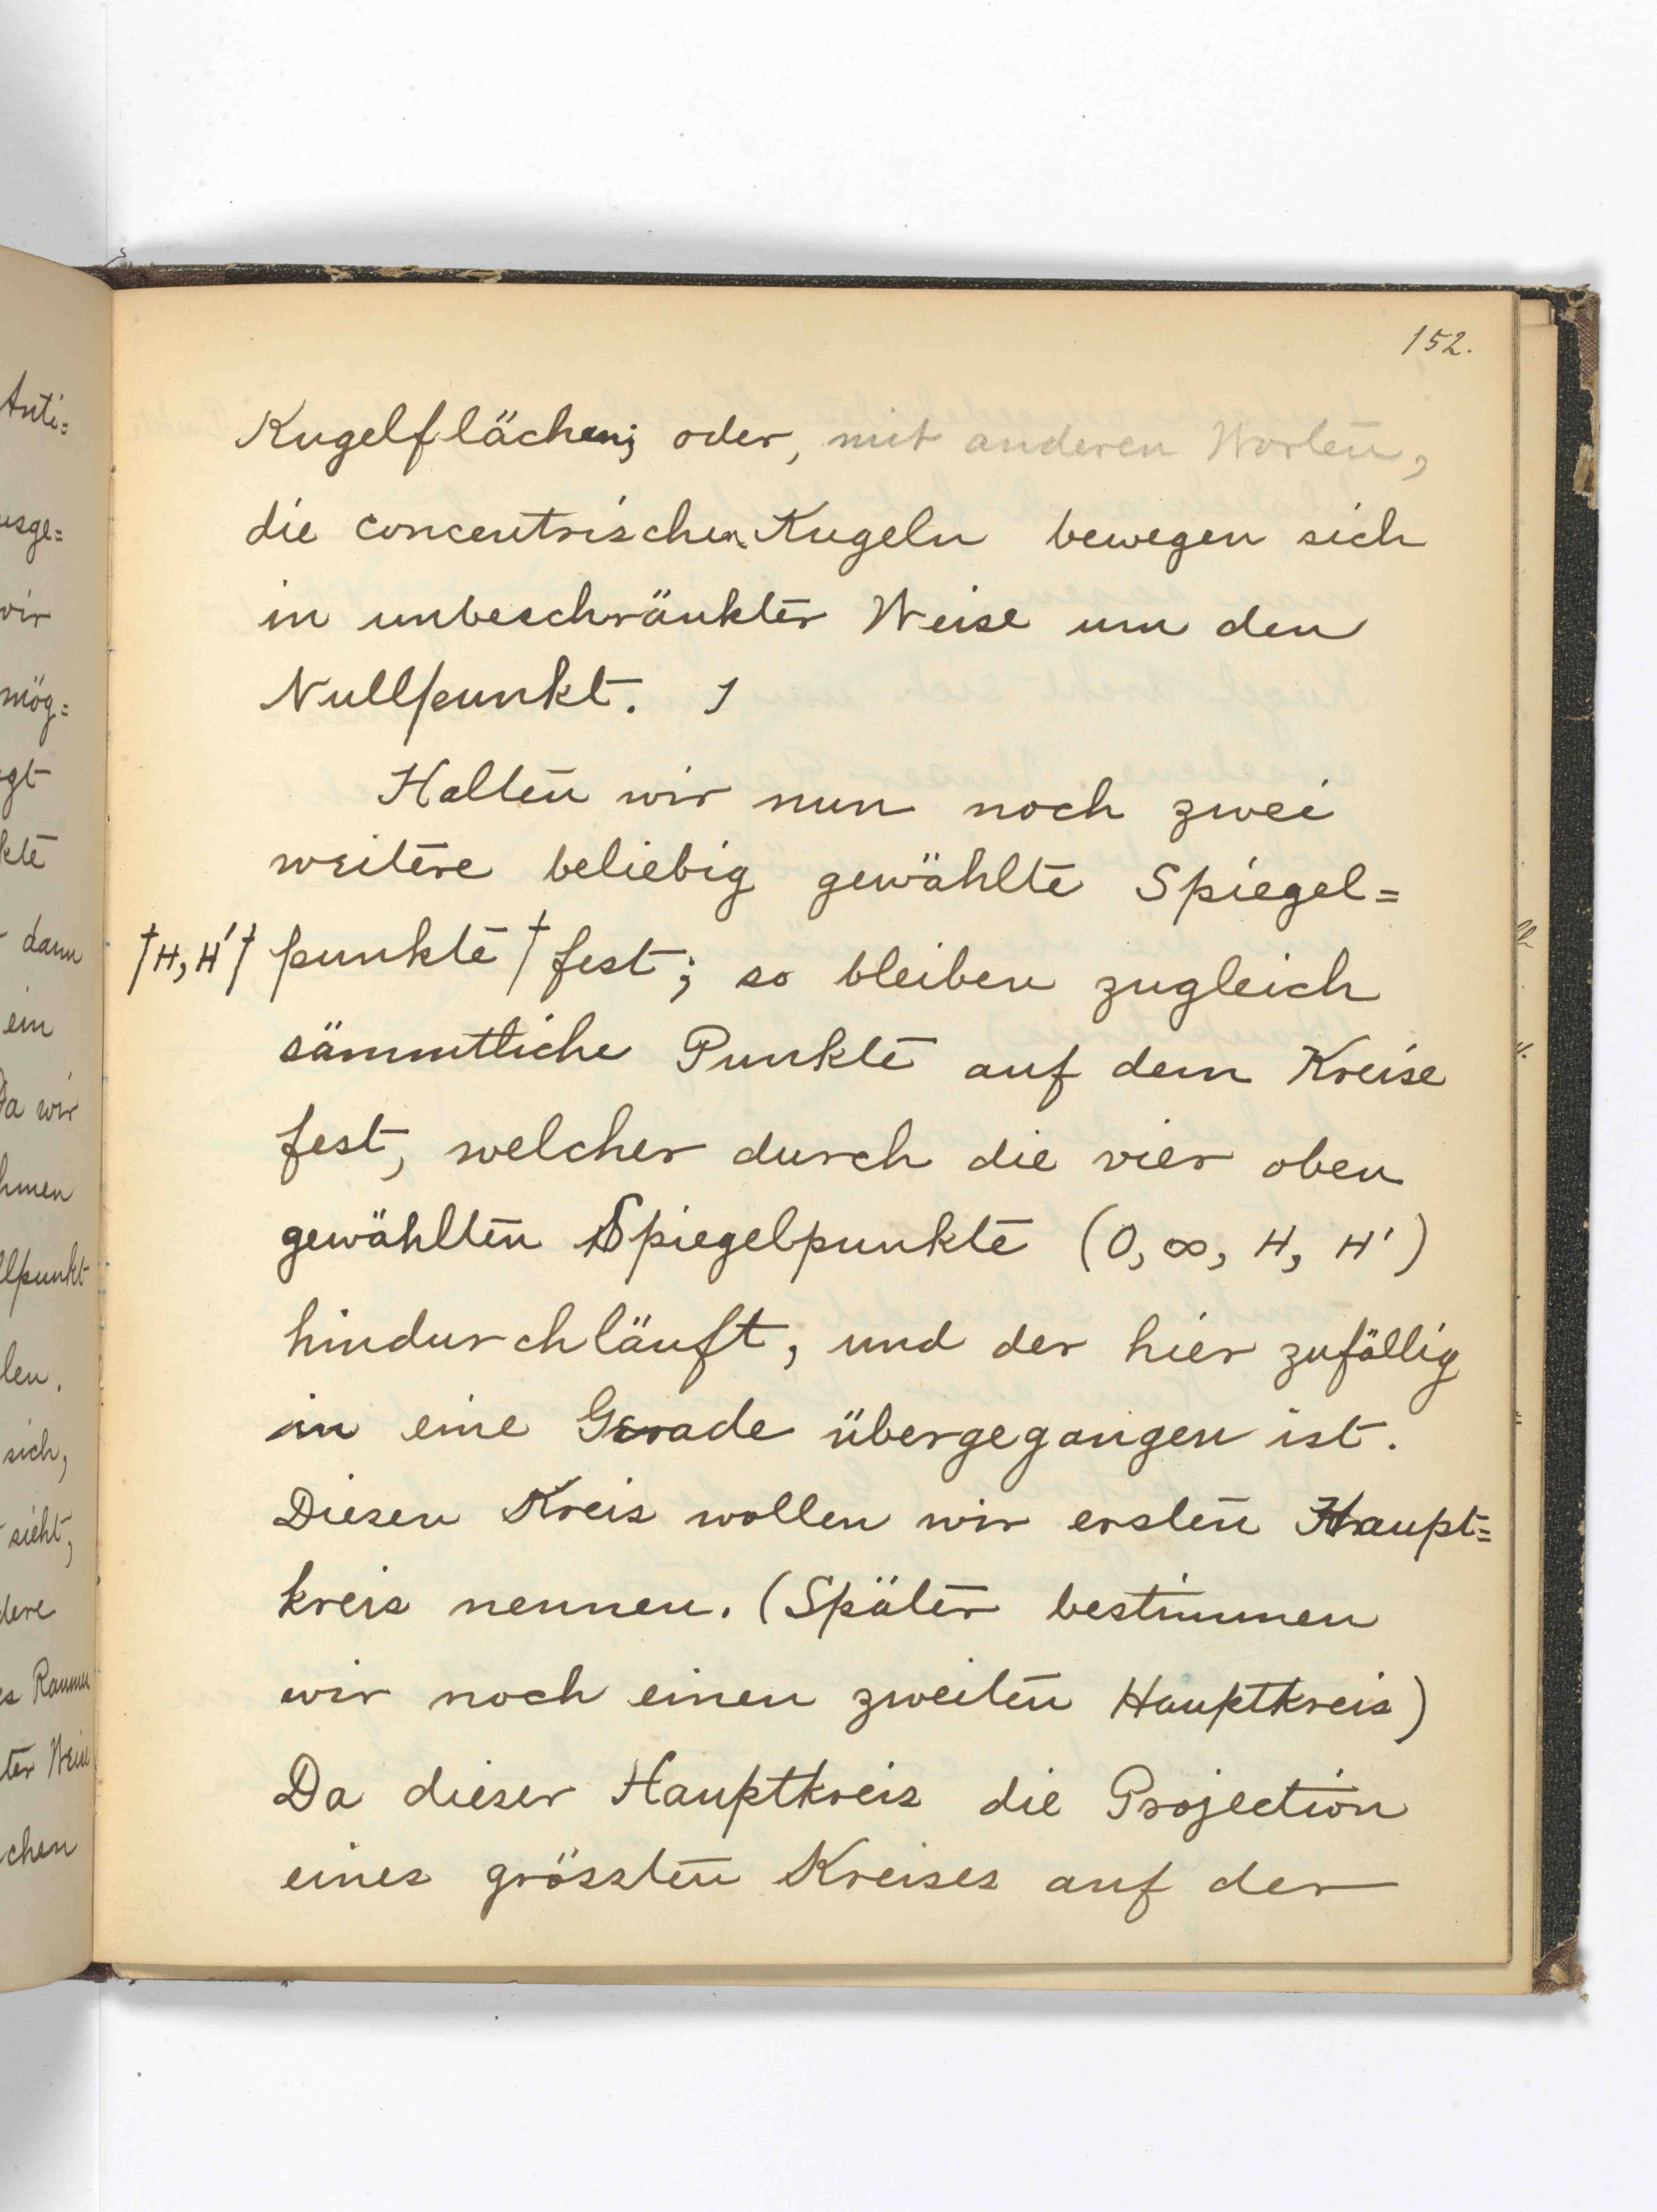 Anti=
usge=
wir
mög=
gt
kte
dann
ein
Da wir
hmen
llpunkt
len.
sich,
sieht,
dere
es Raumes
ter Weise
chen
152.
Kugelflächen; oder, mit anderen Worten,
die concentrischen Kugeln bewegen sich
in unbeschränkter Weise um den
Nullpunkt. 1
Halten wir nun noch zwei
weitere beliebig gewählte Spiegel=
†H, H'† punkte † fest; so bleiben zugleich
sämmtliche Punkte auf dem Kreise
fest, welcher durch die vier oben
gewählten Spiegelpunkte (0, ∞, H, H')
hindurchläuft, und der hier zufällig
in eine Gerade übergegangen ist.
Diesen Kreis wollen wir ersten Haupt=
kreis nennen. (Später bestimmen
wir noch einen zweiten Hauptkreis)
Da dieser Hauptkreis die Projection
eines grössten Kreises auf der